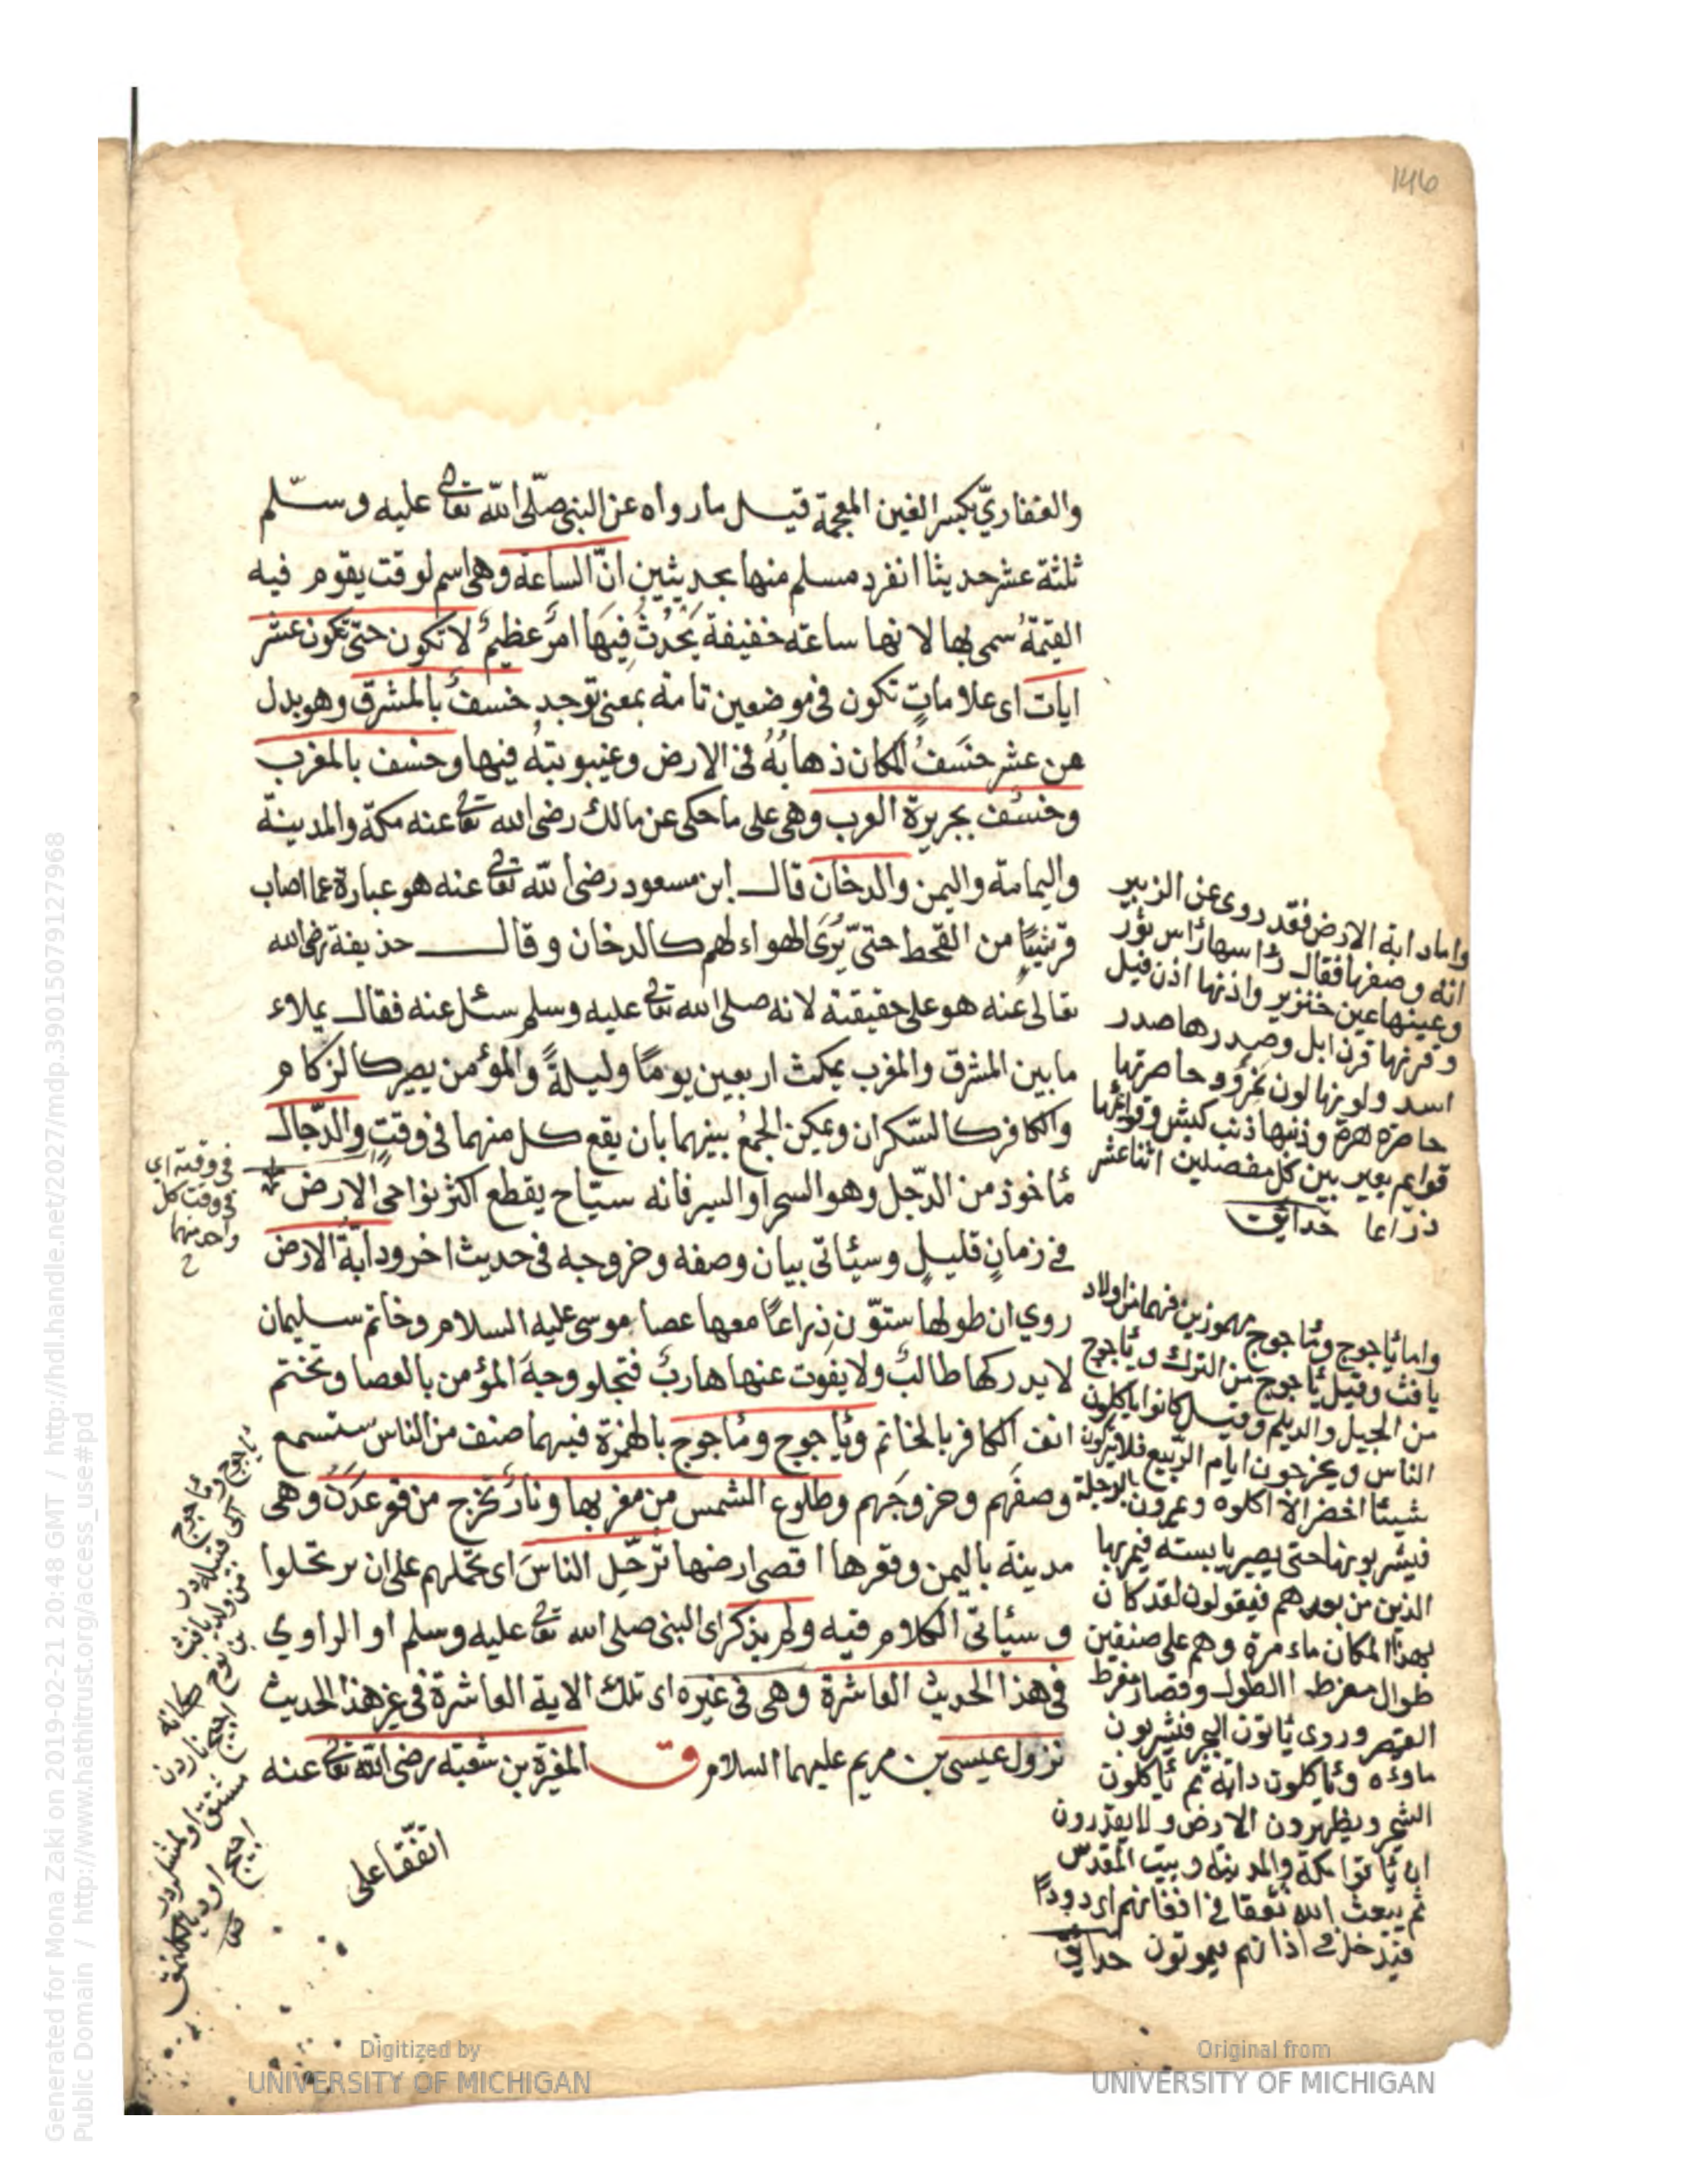 146
والغفاريّ بكسر الغين المعجمة قيل ما رواه عن النبى صلّى الله تعالى عليه وسلّم
ثلثة عشر حديثا انفرد مسلم منها بحديثين انّ الساعة وهى اسم لوقت يقوم فيه
القيمةُ سمى بها لانها ساعته خفيفة يَحْدُثُ فِيهَا امرٌ عظيمٌ لا تكون حتّى تكون عشر
ايات اى علاماتٍ تكون فى موضعين تامة بمعنى توجد خسفٌ بالمشرق وهو بدل
من عشر خَسَفُ المكان ذهابُهُ فى الارض وغيبوبتهُ فيها وخسف بالمغرب
وخسْف بجزيرة العرب وهى على ما حكى عن مالك رضى الله تعالى عنه مكة والمدينة
واليمامة واليمن والدخان قال ابن مسعود رضى الله تعالى عنه هو عبارة عما اصاب
قريشًا من القحط حتىّ يُرَى الهواء لهم كالدخان وقال حذيفة رضى الله
تعالى عنه هو على حقيقته لانه صلى الله تعالى عليه وسلم سئل عنه فقال يملاء
ما بين المشرق والمغرب يمكث اربعين يومًا وليلةً والمؤمن يصير كالزكام
والكافر كالسّكران ويمكن الجمعُ بينهما بان يقع كل منهما فى وقتٍ والدّجال
مأخوذ من الدّجل وهو السحر او السير فانه سيّاح يقطع اكثر نواحى الارض
فى زمانٍ قليلٍ وسيئاتى بيان وصفه وخروجه فى حديث اخر ودابّة الارض
روي ان طولها ستوّن ذِراعًا معها عصا موسى عليه السلام وخاتم سليمان
لا يدركها طالبٌ ولا يفوت عنها هاربٌ فتجلو وجهَ المؤمن بالعصا وتختم
انف الكافر بالخاتم ويأجوج ومأجوج بالهمزة فيهما صنف من الناس ستسمع
وصفَهم وخروجَهم وطلوع الشمس من مغربها ونارٌ تخرج من قوعدَن وهى
مدينة باليمن وقعرها اقصى ارضها ترّحِل الناسَ اى تحملهم على ان يرتحلوا
وسيئاتى الكلام فيه ولم يذكر اى النبى صلى الله تعالى عليه وسلم او الراوي
فى هذا الحديث العاشرة وهى فى غيره اى تلك الاية العاشرة فى غير هذا الحديث
نزول عيسى بن مريم عليهما السلام ق المغيرة بن شعبة رضى الله تعالى عنه
اتفّقا على
واما دابة الارض فقد روى عن الزبير
انه وصفها فقال رأسها رأس ثور
وعينها عين خنزير واذنها اذن فيل
وقرنها قرن ابل وصدرها صدر
اسد ولونها لون نمر وو خاصرتها
خاصرة هرة وذنبها ذنب كبش وقوائمها
قوايم بعير بين كل مفصلين اثنا عشر
ذراعا حدائق
واما يأجوج ومأجوج مهموزين فهما من اولاد
يافث وقيل يأجوج من الترك ومأجوج
من الجيل والديلم وقيل كانوا يأكلون
الناس ويخرجون ايام الربيع فلا يتركون
شيئا اخضر الا اكلوه ويمرون بالدجلة
فيشربونها حتى يصير يابسة فيمر بها
الذين من بعدهم فيقولون لقد كان
بهذا المكان ماء مرة وهم على صنفين
طوال مفرط الطول وقصار مفرط
القصر وروى يأتون البحر فيشربون
ماؤه ويأكلون دابّة ثم يأكلون
الشجر ويظهرون الارض ولا يقدرون
ان يأتوا مكة والمدينة وبيت المقدّس
ثم يبعث الله نغفا فى اقفائهم اى دودًا
فيدخل فى اذانهم فيموتون حدائق
فى وقته اى
فى وقت كل
واحد منهما
ح
يأجوج ومأجوج
من ولد يافث
بن نوح
Generated for Mona Zaki on 2019-02-21 20:48 GMT / http://hdl.handle.net/2027/mdp.39015079127968
Public Domain / http://www.hathitrust.org/access_use#pd
Digitized by
UNIVERSITY OF MICHIGAN
Original from
UNIVERSITY OF MICHIGAN